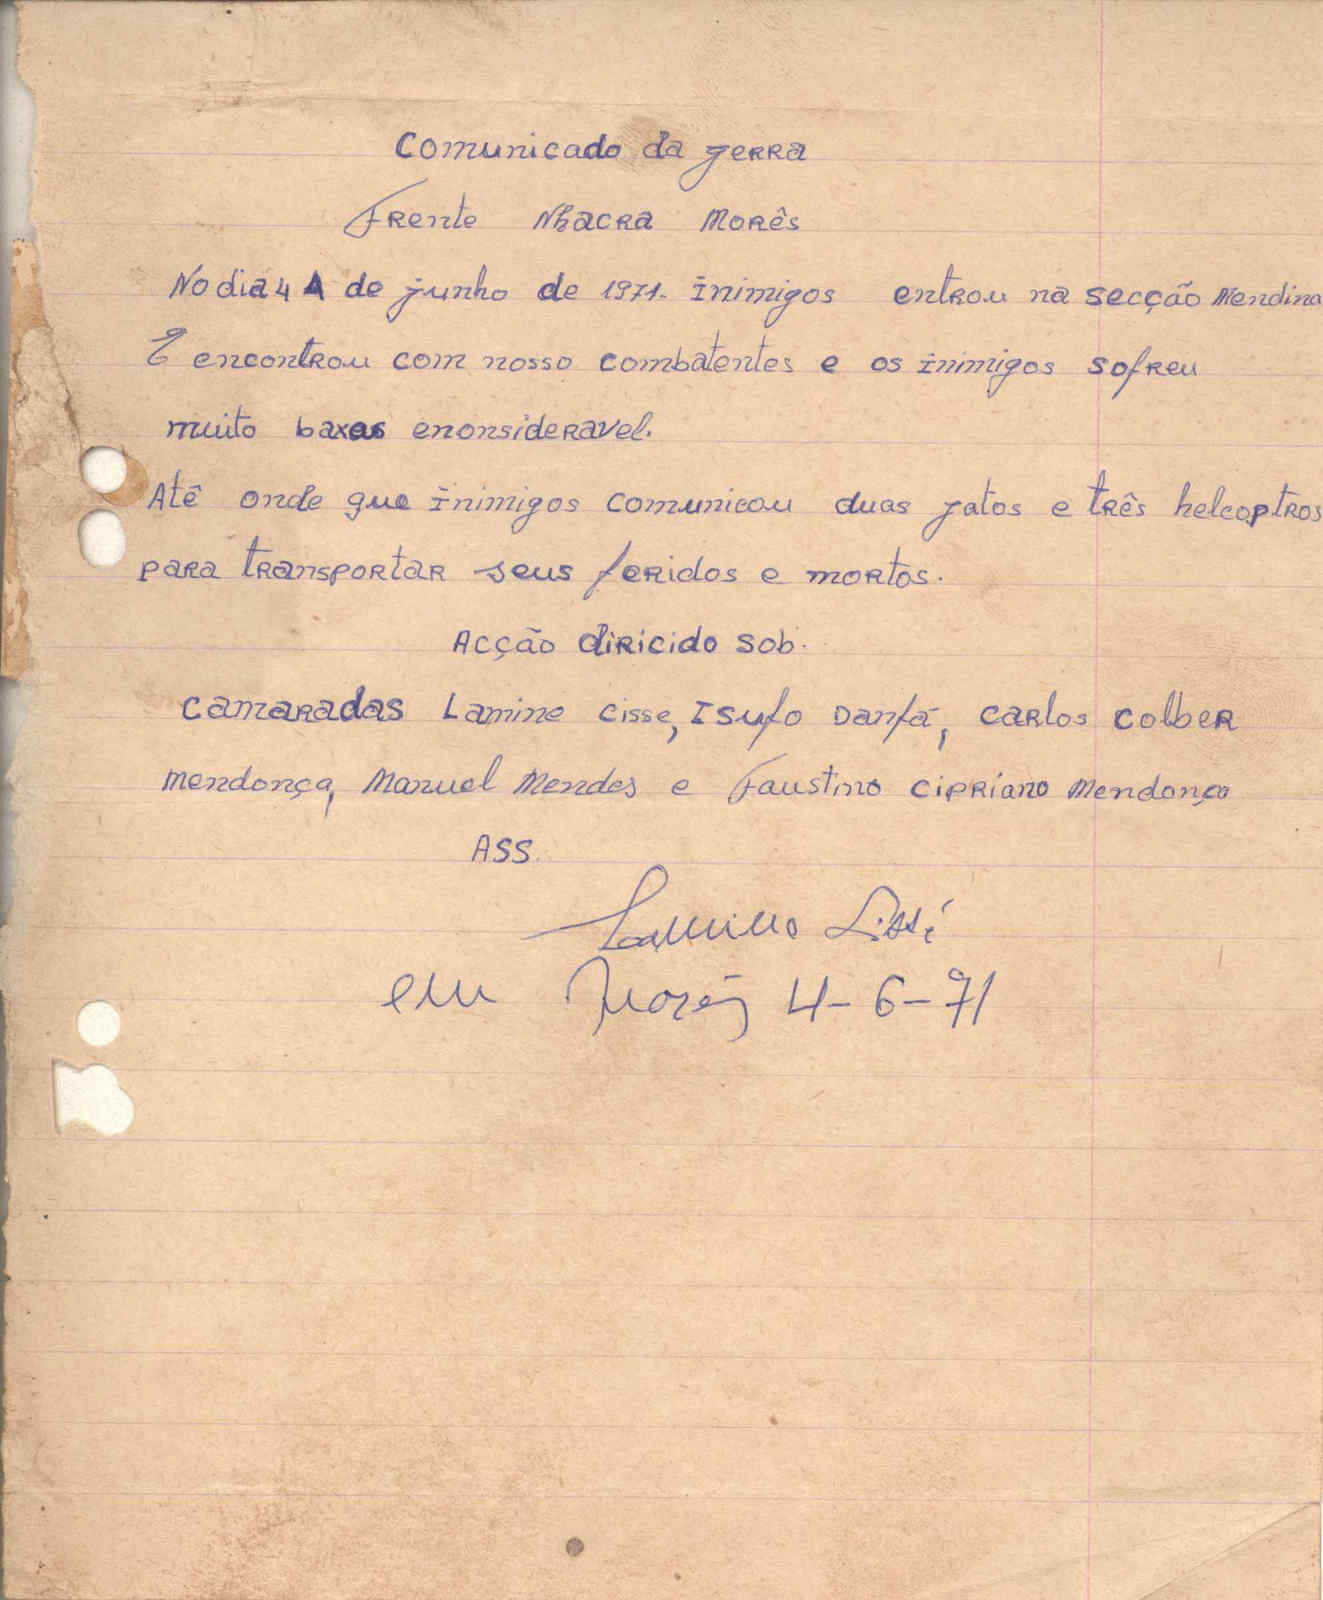 Comunicado da gerra
Frente Nhacra Morês
No dia 4 de junho de 1971. inimigos entrou na secção Mendina
E encontrou com nosso combatentes e os inimigos sofreu
muito baxas enonsideravel.
Atê onde que inimigos comunicou duas jatos e três helcoptros
para transportar seus feridos e mortos.
Acção diricido sob.
Camaradas Lamine Cisse, Isufo Danfá, Carlos Colber
Mendonça, Manuel Mendes e Faustino Cipriano Mendonça
ASS.
Lamine Sissé
em Morés 4-6-71